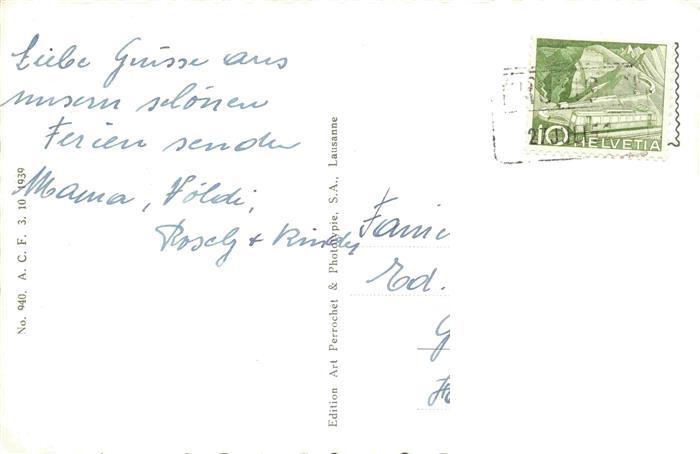 Liebe Grüsse aus
unsern schönen
Ferien senden
Mama, Völdi,
No. 940. A. C. F. 3. 10. 1939
Edition Art Perrochet & Phototypie, S.A., Lausanne
10 HELVETIA
Fami
Ed.